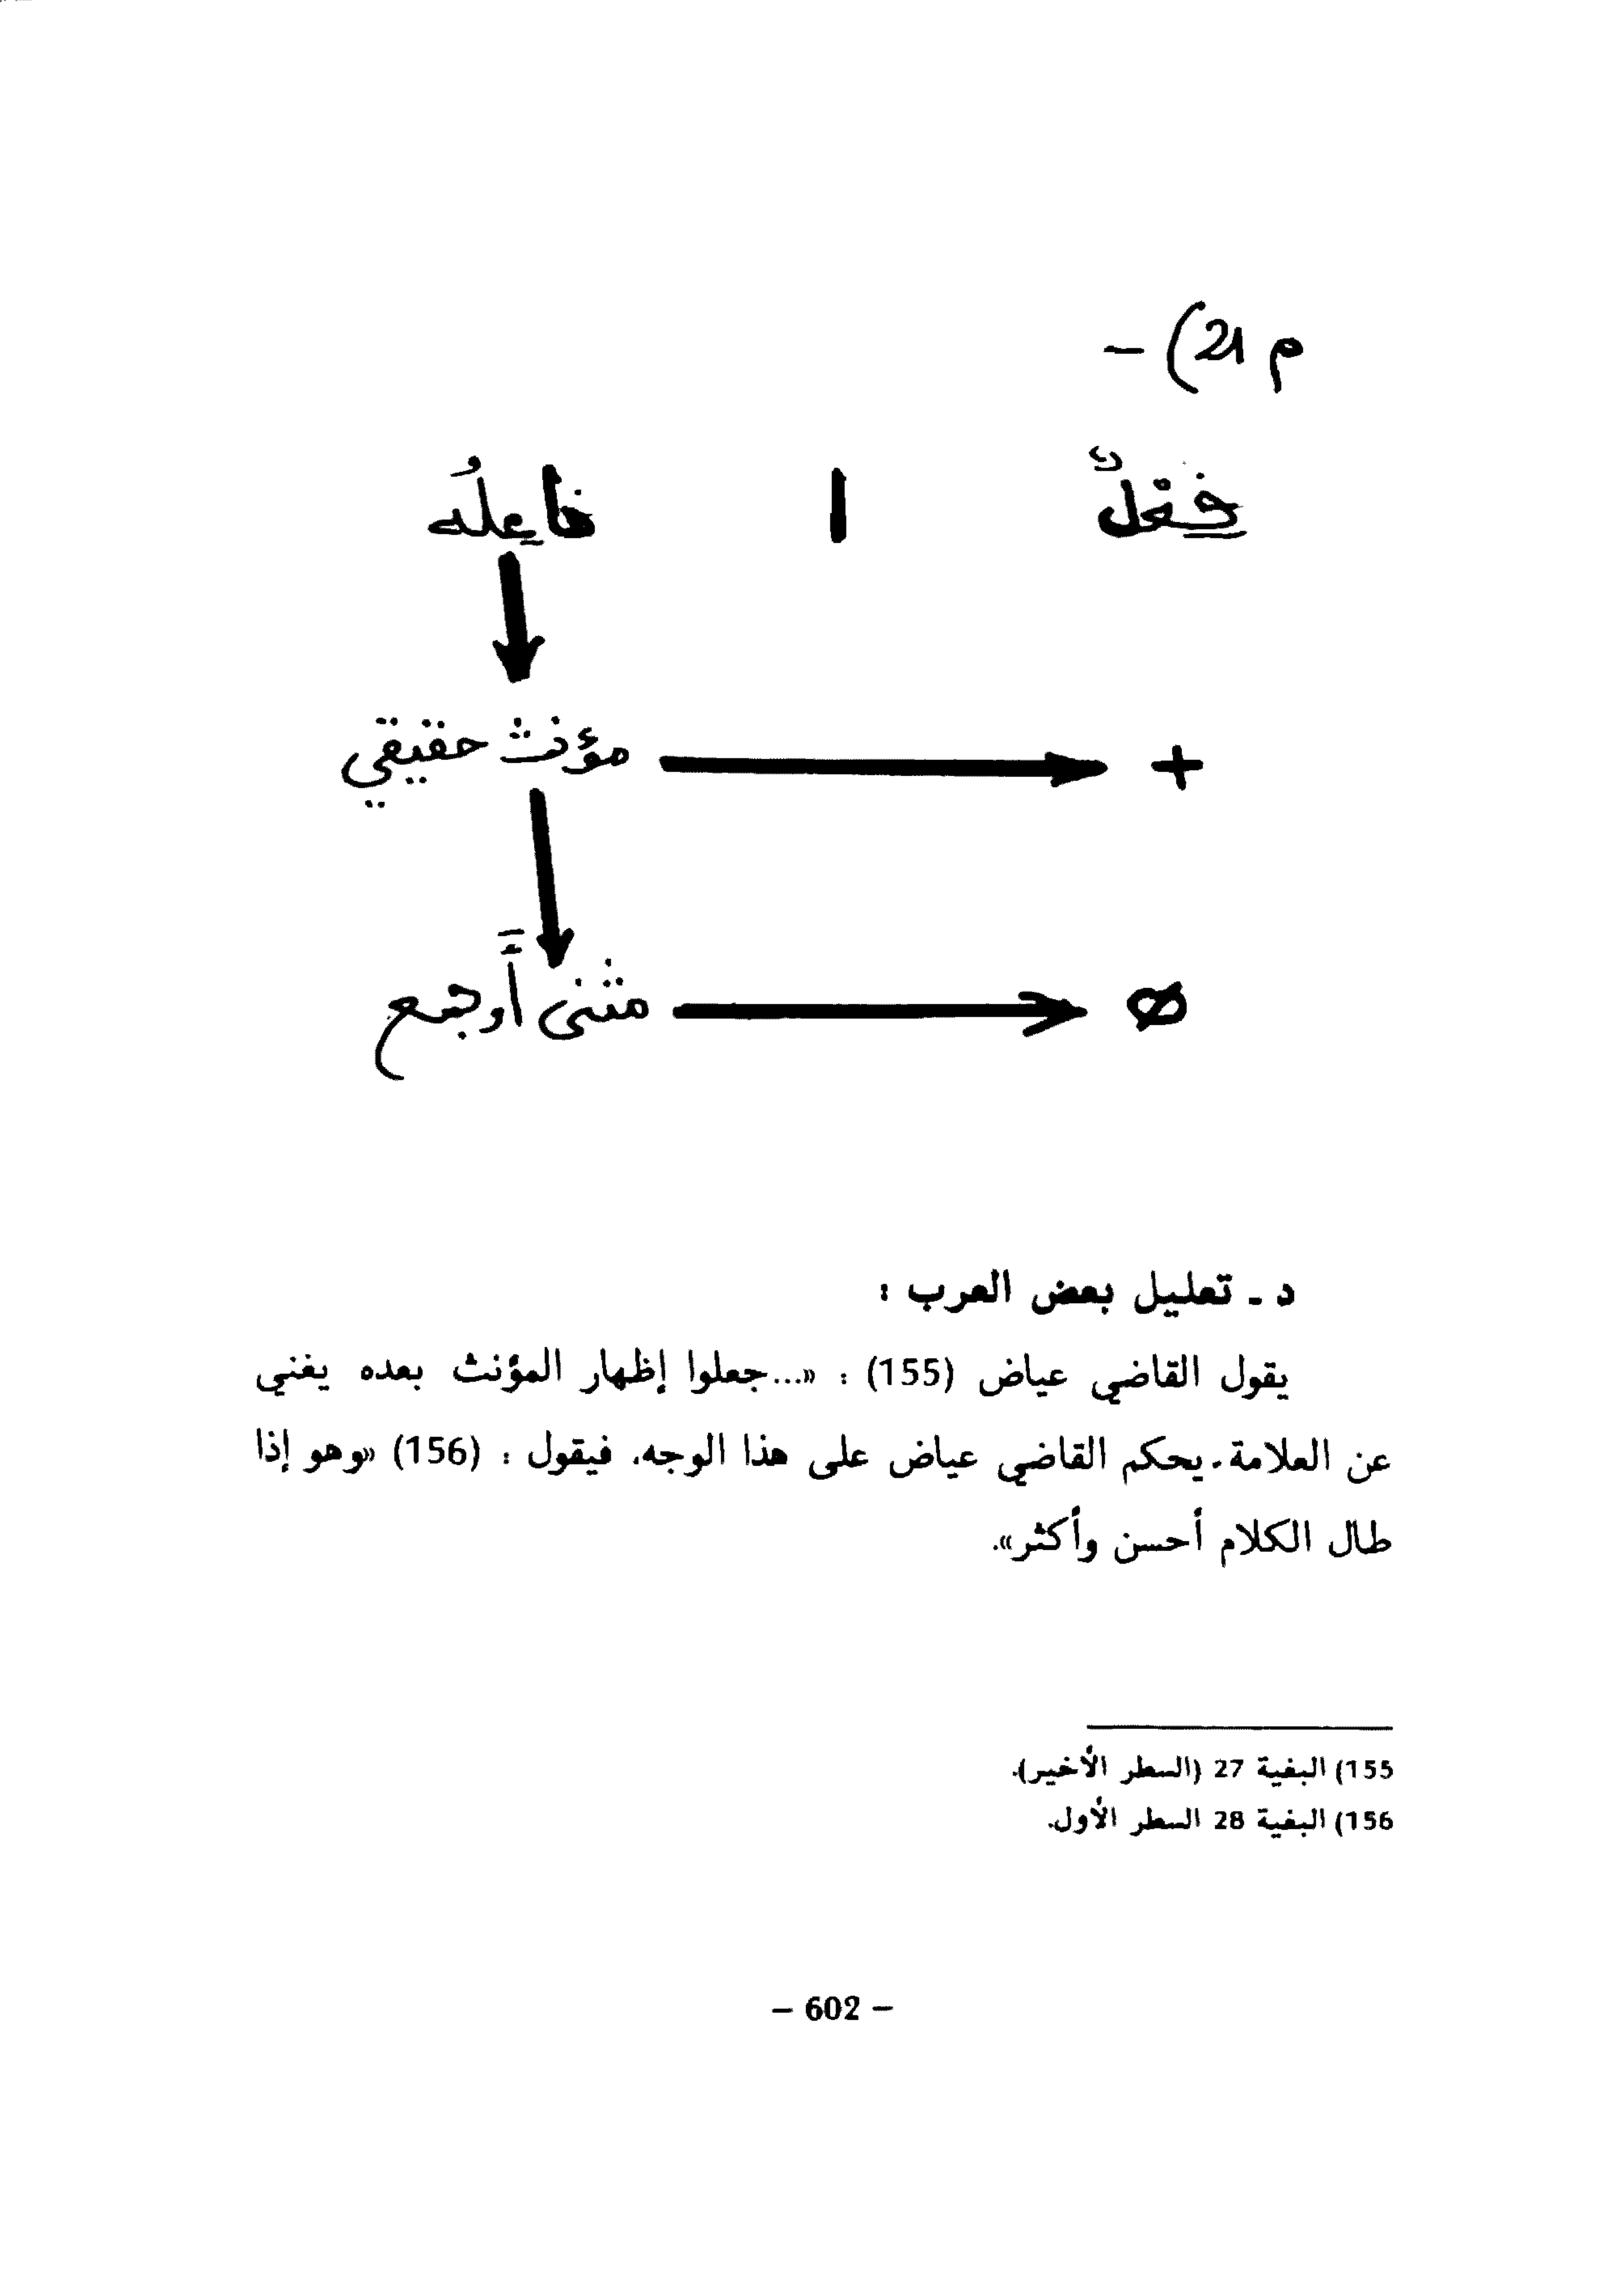 م 21) –
فِعْلٌ | فاعِلُه
مؤنث حقيقي +
مثنى أَوجمع Ø
د ـ تعليل بعض العرب :
يقول القاضي عياض (155) : «...جعلوا إظهار المؤنث بعده يغني
عن العلامة. يحكم القاضي عياض على هذا الوجه، فيقول : (156) «وهو إذا
طال الكلام أحسن وأكثر».
155) البغية 27 (السطر الأخير).
156) البغية 28 السطر الأول.
– 602 –